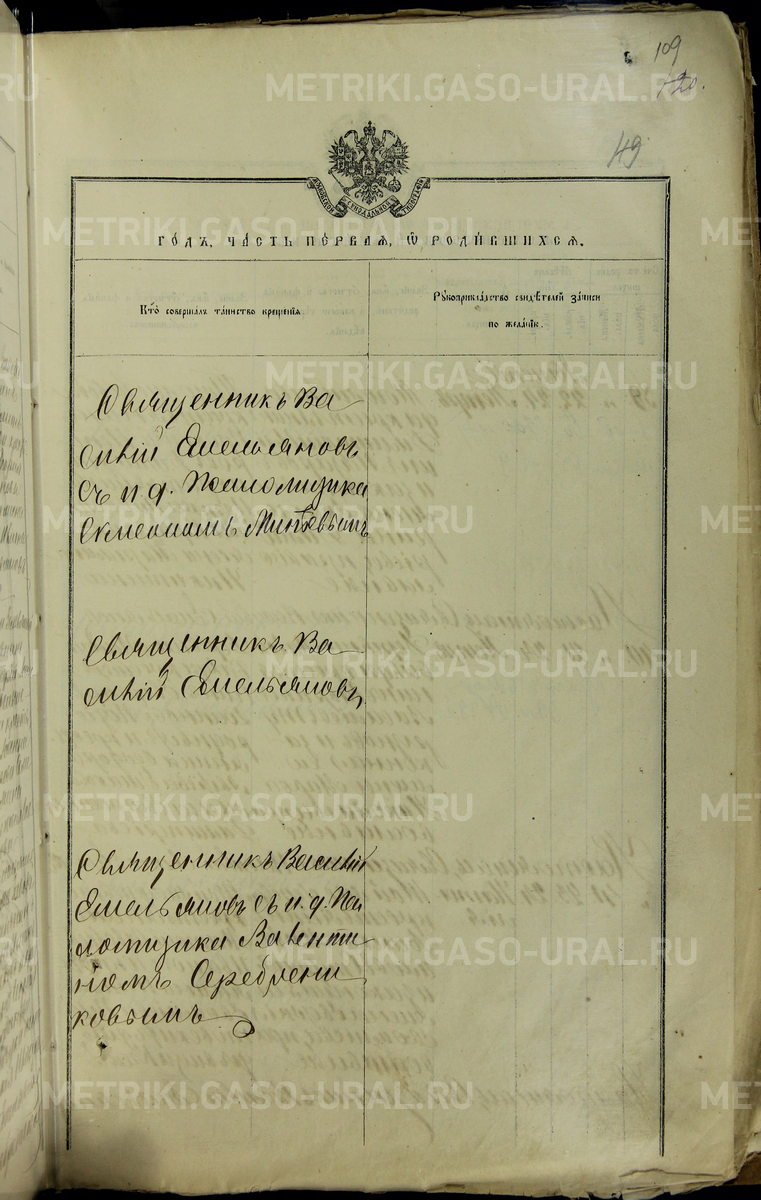 109
120.
49
МОСКОВСКОЙ СѴНОДАЛЬНОЙ ТИПОГРАФІИ
ГО́ДЪ, ЧА́СТЬ ПЕ́РВАѦ, Ѡ҆ РОДИ́ВШИХСѦ.
Кто̀ соверша́лъ та́инство креще́нїѧ.
Рꙋкоприкла́дство свидѣ́телей за́писи
по жела́нїю.
Священникъ Ва
силій Емельяновъ
съ и. д. Псаломщика
Симеономъ
Священникъ Ва
силій Емельяновъ
Священникъ Василій
Емельяновъ съ и. д. Пса
ломщика Вавенти
номъ Серебрени
ковымъ
METRIKI.GASO-URAL.RU